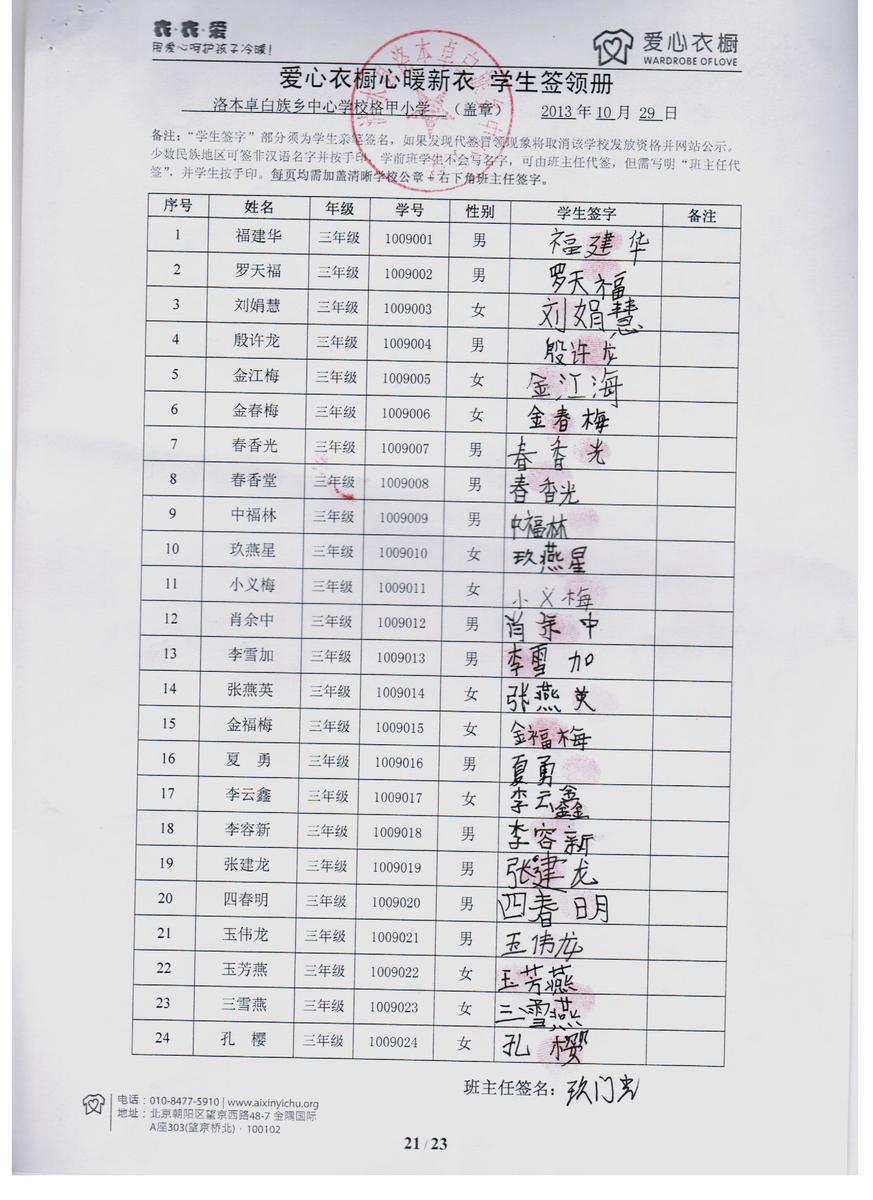 衣·衣·爱
用爱心呵护孩子冷暖!
爱心衣橱
WARDROBE OF LOVE
爱心衣橱心暖新衣 学生签领册
洛本卓白族乡中心学校格甲小学 (盖章) 2013 年 10 月 29 日
备注:“学生签字”部分须为学生亲笔签名,如果发现代签冒领现象将取消该学校发放资格并网站公示。
少数民族地区可签非汉语名字并按手印。学前班学生不会写名字,可由班主任代签,但需写明“班主任代
签”,并学生按手印。每页均需加盖清晰学校公章+右下角班主任签字。
序号 姓名 年级 学号 性别 学生签字 备注
1 福建华 三年级 1009001 男 福建华
2 罗天福 三年级 1009002 男 罗天福
3 刘娟慧 三年级 1009003 女 刘娟慧
4 殷许龙 三年级 1009004 男 殷许龙
5 金江梅 三年级 1009005 女 金江海
6 金春梅 三年级 1009006 女 金春梅
7 春香光 三年级 1009007 男 春香光
8 春香堂 三年级 1009008 男 春香光
9 中福林 三年级 1009009 男 中福林
10 玖燕星 三年级 1009010 女 玖燕星
11 小义梅 三年级 1009011 女 小义梅
12 肖余中 三年级 1009012 男 肖余中
13 李雪加 三年级 1009013 男 李雪加
14 张燕英 三年级 1009014 女 张燕英
15 金福梅 三年级 1009015 女 金福梅
16 夏 勇 三年级 1009016 男 夏勇
17 李云鑫 三年级 1009017 女 李云鑫
18 李容新 三年级 1009018 男 李容新
19 张建龙 三年级 1009019 男 张建龙
20 四春明 三年级 1009020 男 四春明
21 玉伟龙 三年级 1009021 男 玉伟龙
22 玉芳燕 三年级 1009022 女 玉芳燕
23 三雪燕 三年级 1009023 女 三雪燕
24 孔 樱 三年级 1009024 女 孔樱
班主任签名: 玖门光
电话:010-8477-5910 | www.aixinyichu.org
地址:北京朝阳区望京西路48-7 金隅国际
A座303(望京桥北),100102
21 / 23